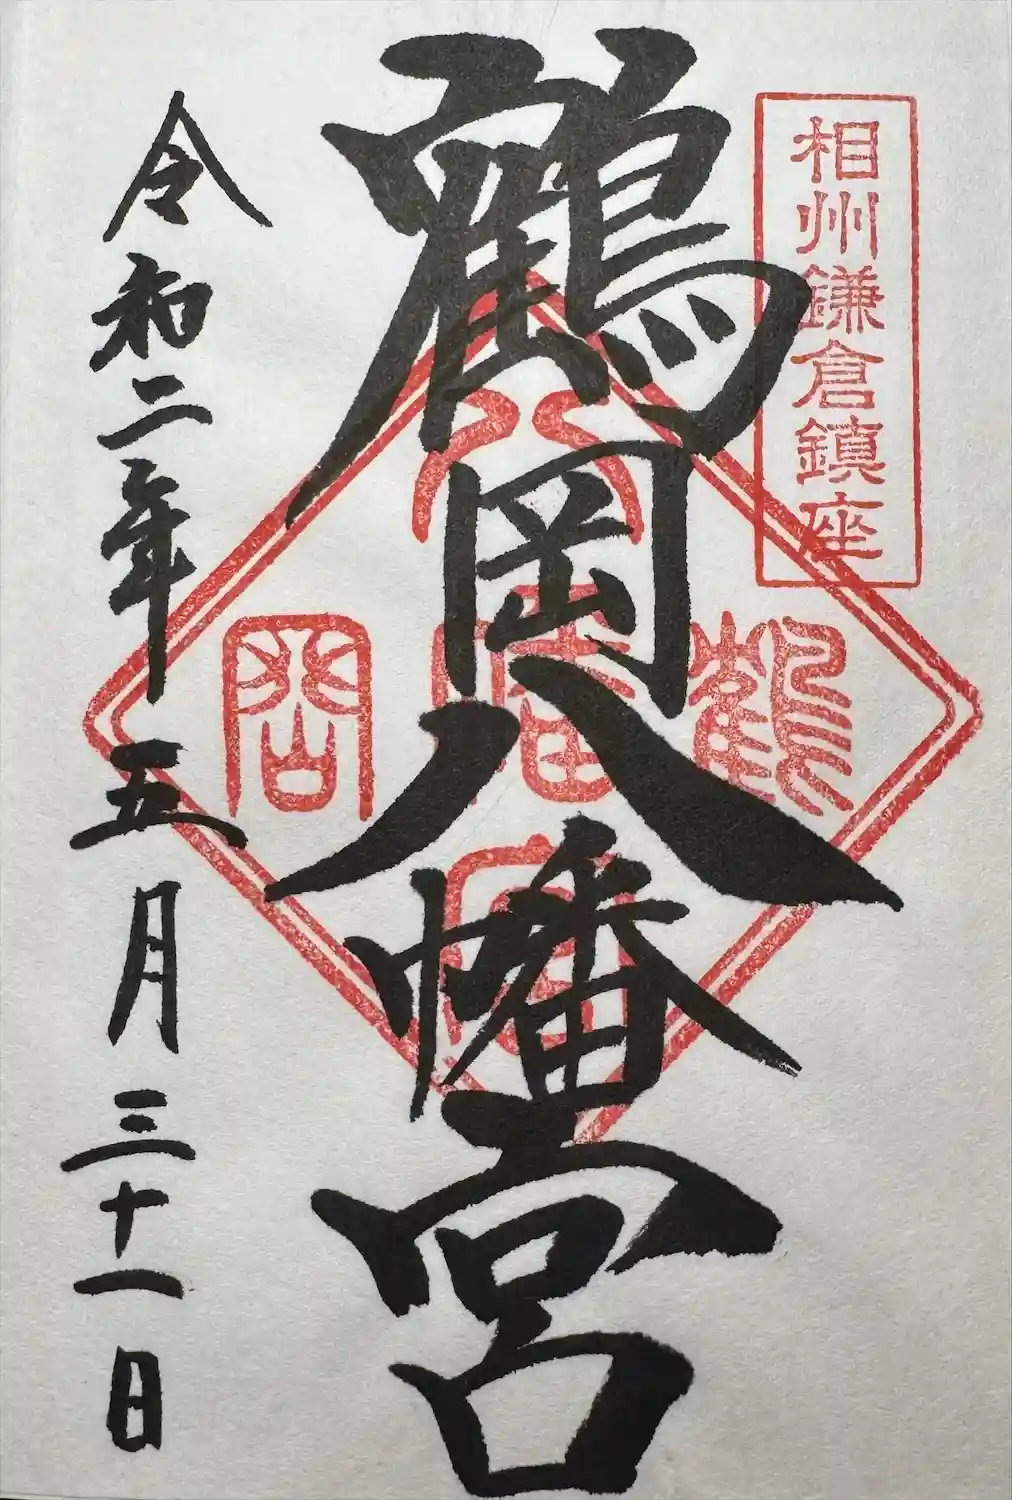 相州鎌倉鎮座
鶴岡八幡宮
鶴
八幡宮
岡
令和二年五月三十一日